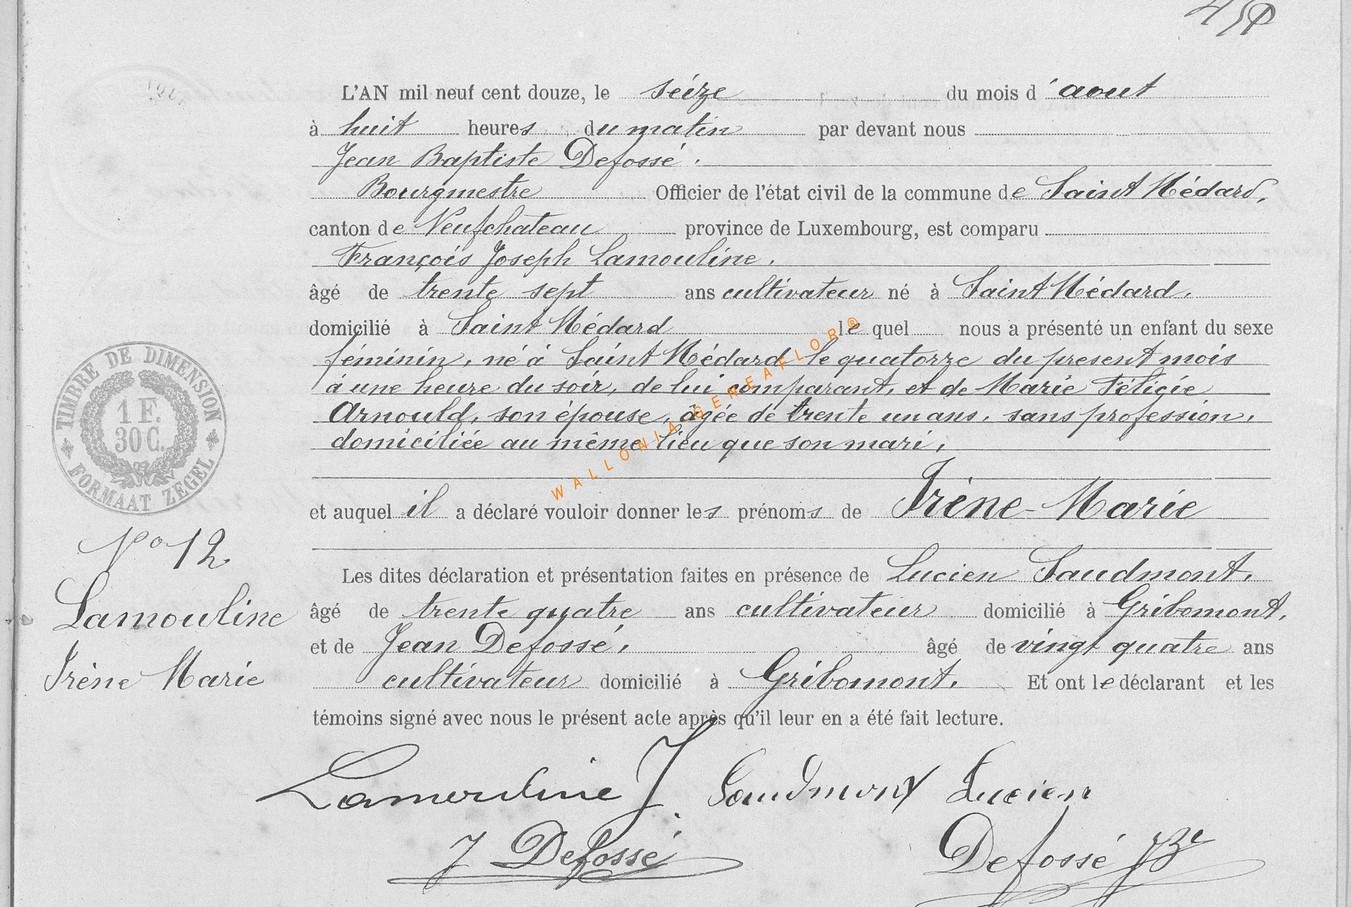 L'AN mil neuf cent douze, le seize du mois d'aout
à huit heures du matin par devant nous
Jean Baptiste Defossé.
Bourgmestre Officier de l'état civil de la commune de Saint Médard,
canton de Neufchateau province de Luxembourg, est comparu
François Joseph Lamouline.
âgé de trente sept ans cultivateur né à Saint Médard.
domicilié à Saint Médard le quel nous a présenté un enfant du sexe
féminin, né à Saint Médard le quatorze du present mois
à une heure du soir, de lui comparant, et de Marie
Arnould, son épouse, âgée de trente un ans, sans profession,
domiciliée au même lieu que son mari,
WALLONIA GENEAFLOR©
et auquel il a déclaré vouloir donner les prénoms de Irène-Marie
TIMBRE DE DIMENSION
1 F.
30 C.
FORMAAT ZEGEL
No 12
Lamouline
Irène Marie
Les dites déclaration et présentation faites en présence de Lucien
âgé de trente quatre ans cultivateur domicilié à Gribomont,
et de Jean Defossé, âgé de vingt quatre ans
cultivateur domicilié à Gribomont. Et ont le déclarant et les
témoins signé avec nous le présent acte après qu'il leur en a été fait lecture.
Lamouline J. Lucien
J Defossé Defossé